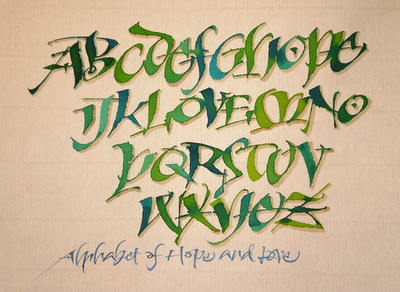 ABCdefGHOPE
IJKLOVEMNO
PQRSTUV
WXY&Z
Alphabet of Hope and Love